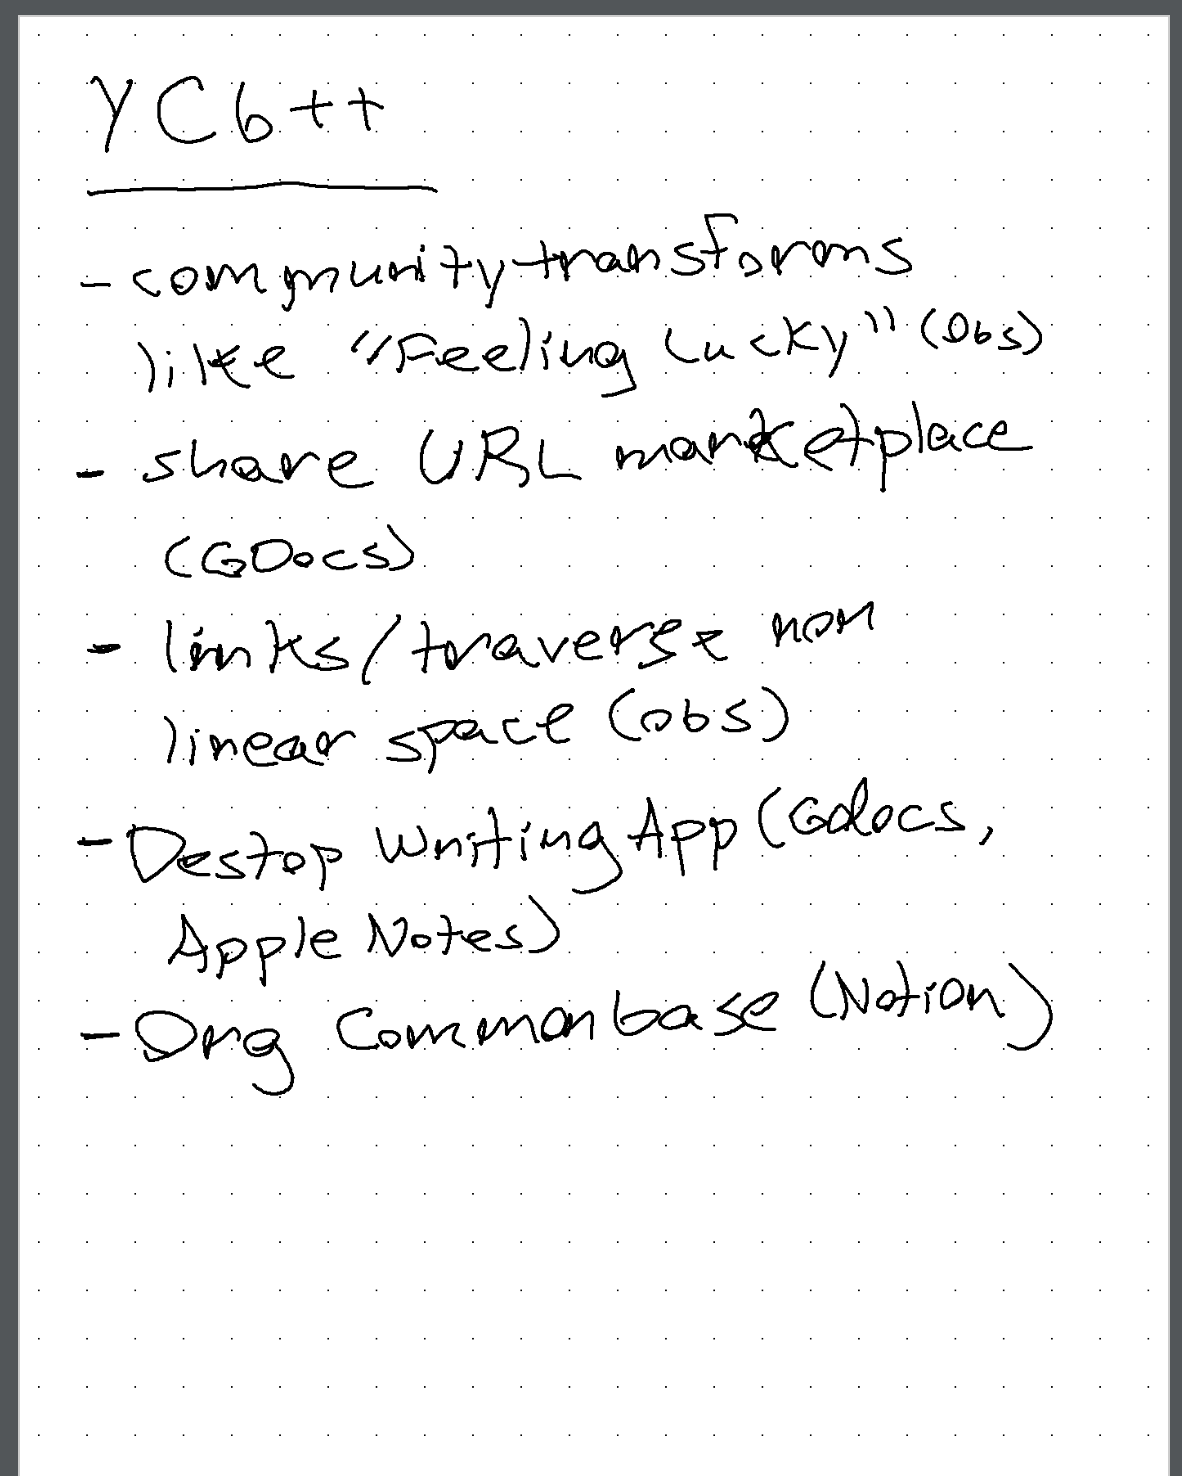 YCb++
- community transforms
like "Feeling Lucky" (Obs)
- share URL marketplace
(GDocs)
- links/traverse non
linear space (obs)
- Destop Writing App (Gdocs,
Apple Notes)
- Org Commonbase (Notion)